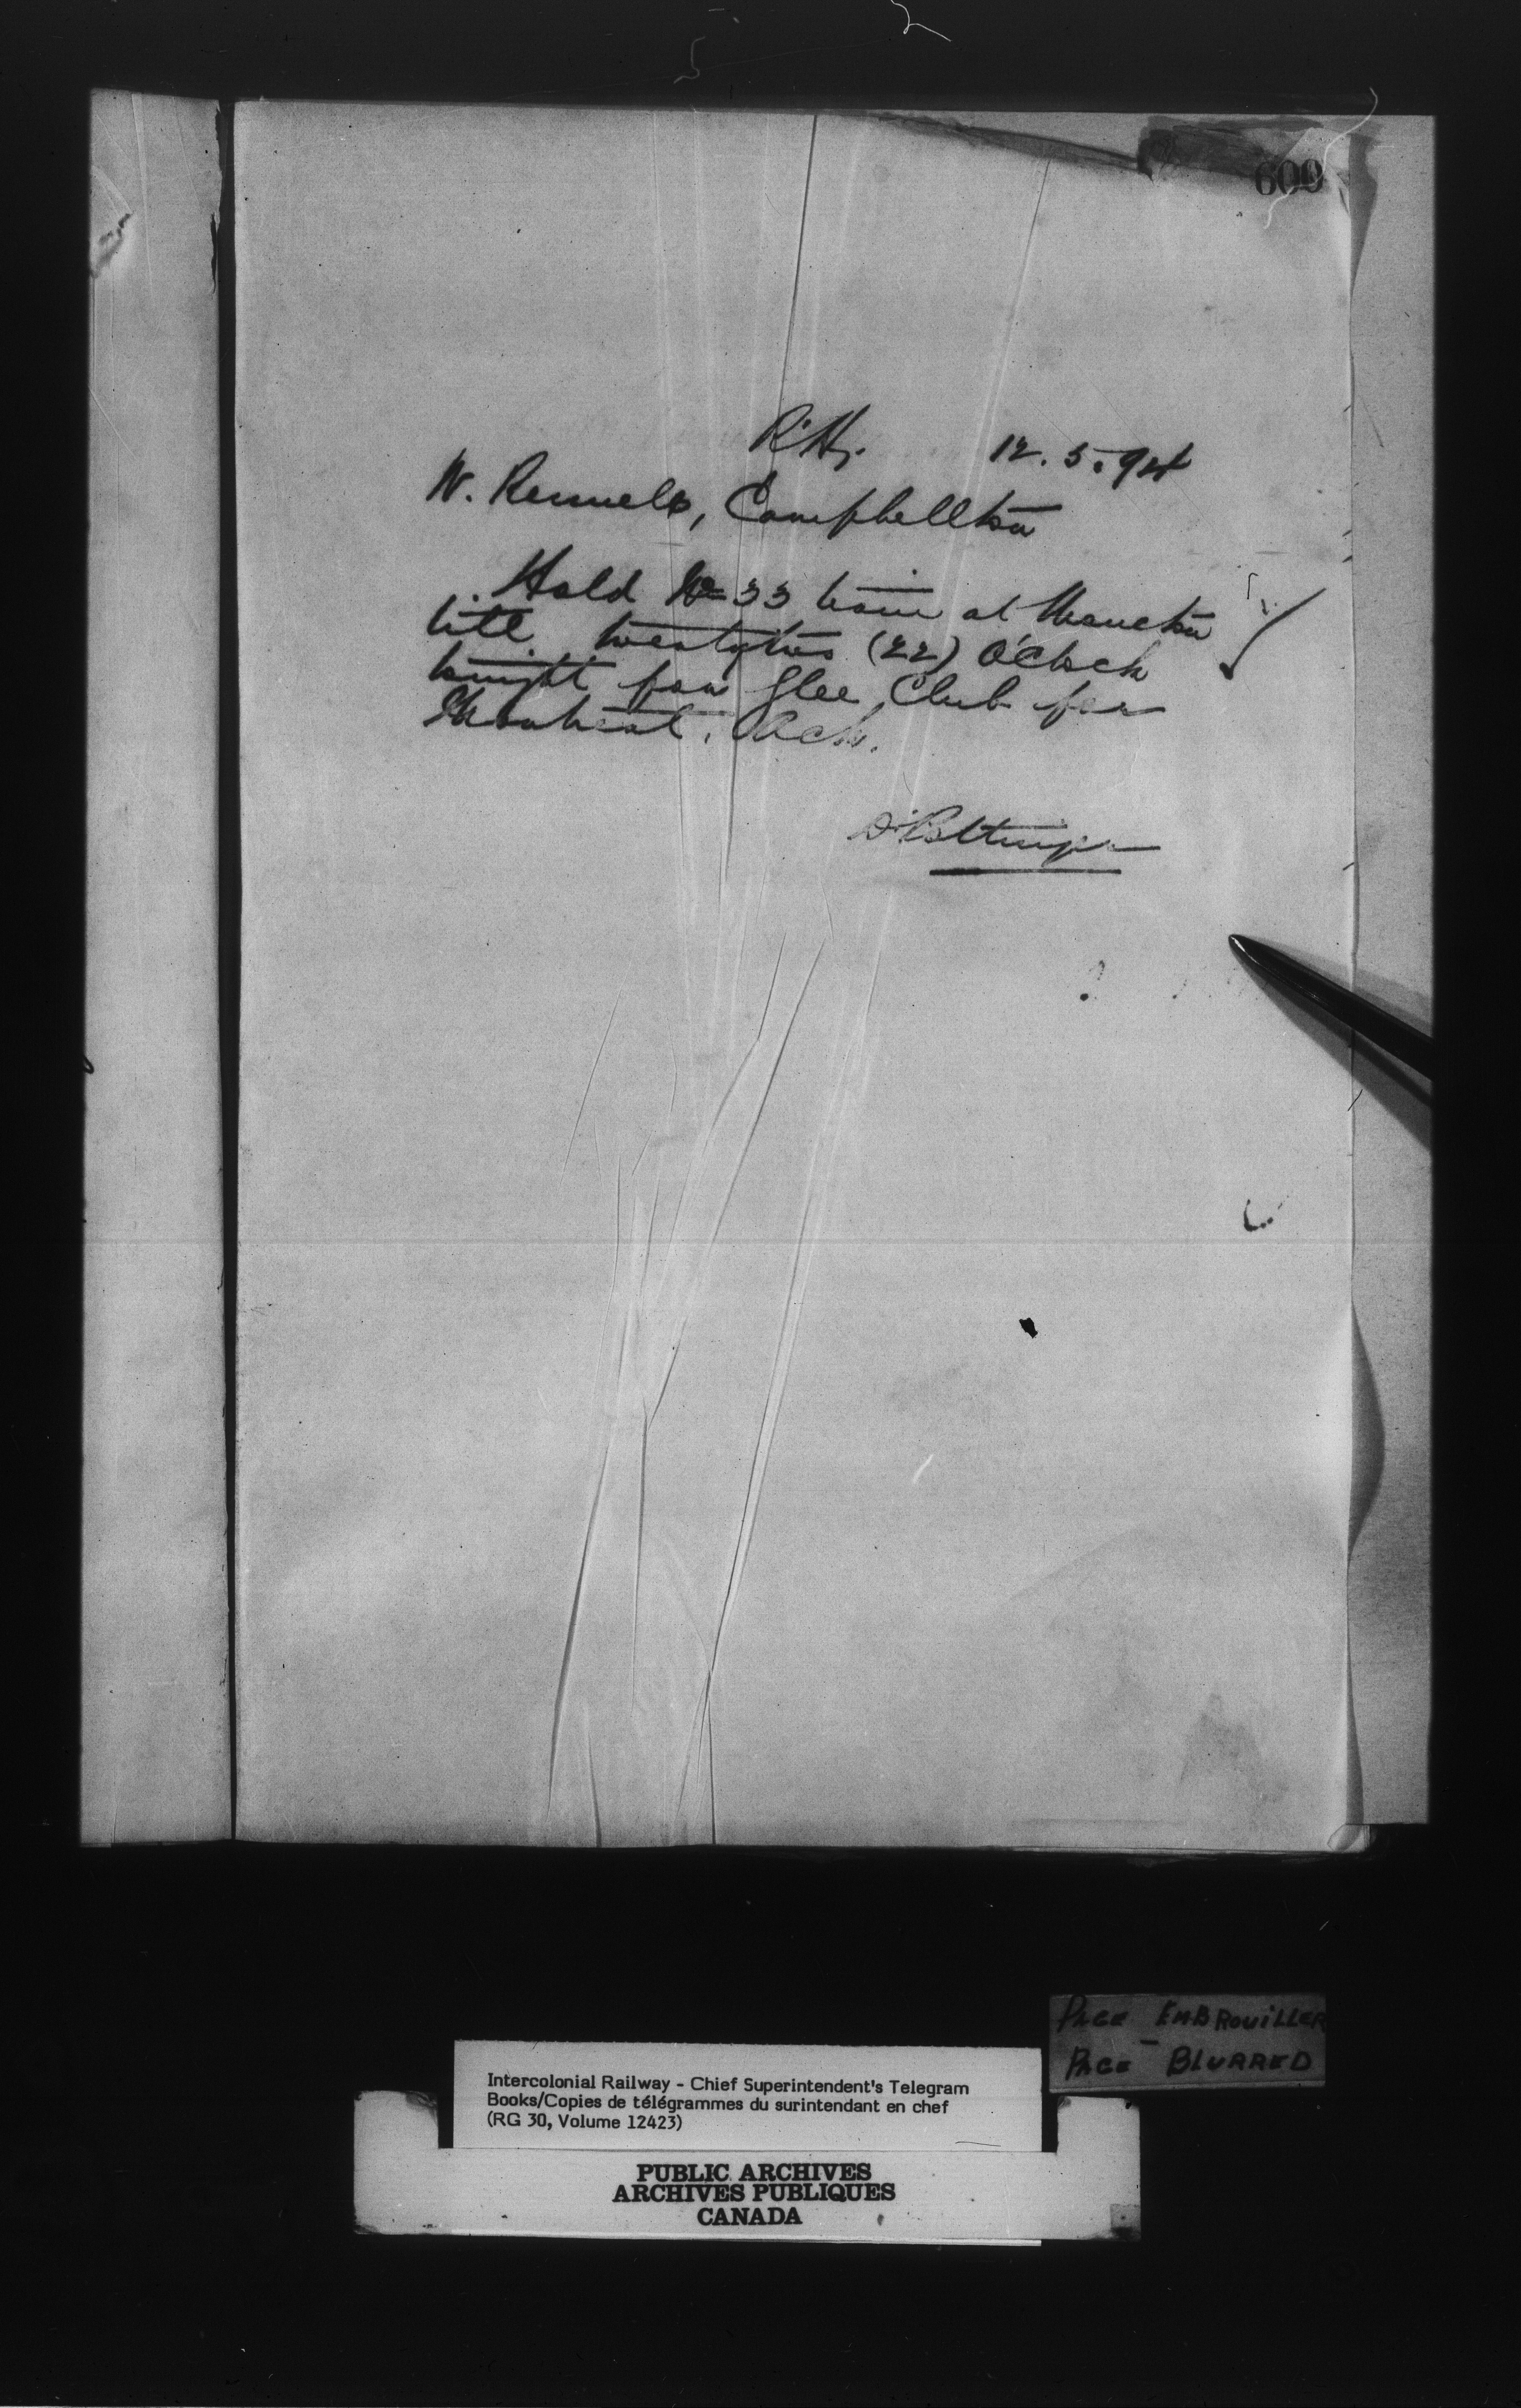 600
R.Hy. 12.5.94
W. Rennels, Campbellton
Hold No 33 train at Moncton
till twentytwo (22) O'Clock
tonight for Glee Club for
Montreal. Ack.
D. Pottinger
PAGE EMBROUILLER
PAGE BLURRED
Intercolonial Railway - Chief Superintendent's Telegram
Books/Copies de télégrammes du surintendant en chef
(RG 30, Volume 12423)
PUBLIC ARCHIVES
ARCHIVES PUBLIQUES
CANADA